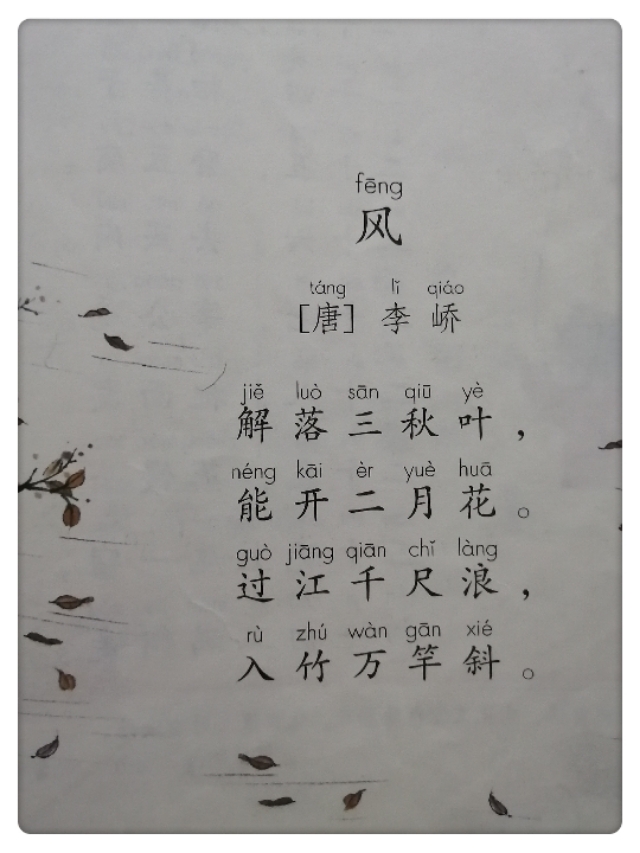 fēng
风
táng lǐ qiáo
[唐] 李 峤
jiě luò sān qiū yè
解落三秋叶，
néng kāi èr yuè huā
能开二月花。
guò jiāng qiān chǐ làng
过江千尺浪，
rù zhú wàn gān xié
入竹万竿斜。